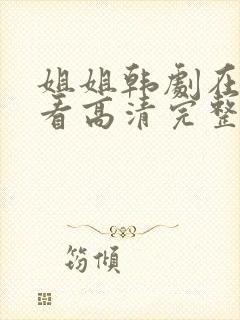 姐姐韩劇在
看高清完整
筠傾